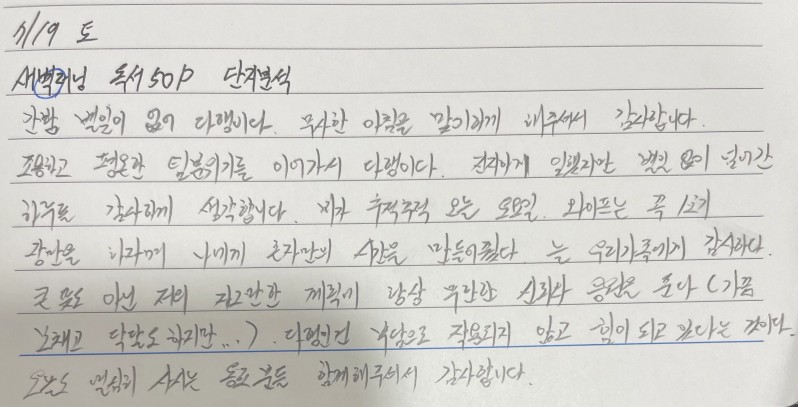 7/19 토
새벽러닝 독서50P 단지분석
간밤 별일이 없어 다행이다. 무사한 아침을 맞이하게 해주셔서 감사합니다.
조용하고 평온한 팀분위기를 이어가서 다행이다. 전직하게 임했지만 별일 없이 넘어간
하루를 감사하게 생각합니다. 비가 추적추적 오는 토요일. 와이프는 꼭
하라며 나에게 혼자만의 시간을 만들어줬다. 늘 우리가족에게 감사하다.
큰 꿈도 아닌 저의 자그만한 계획에 항상 무한한 신뢰와 응원을 준다 (가끔
노채고 닥달도 하지만...). 다행인건 부담으로 작용되지 않고 힘이 되고 있다는 것이다.
오늘도 열심히 사시는 동료분들 함께해주셔서 감사합니다.